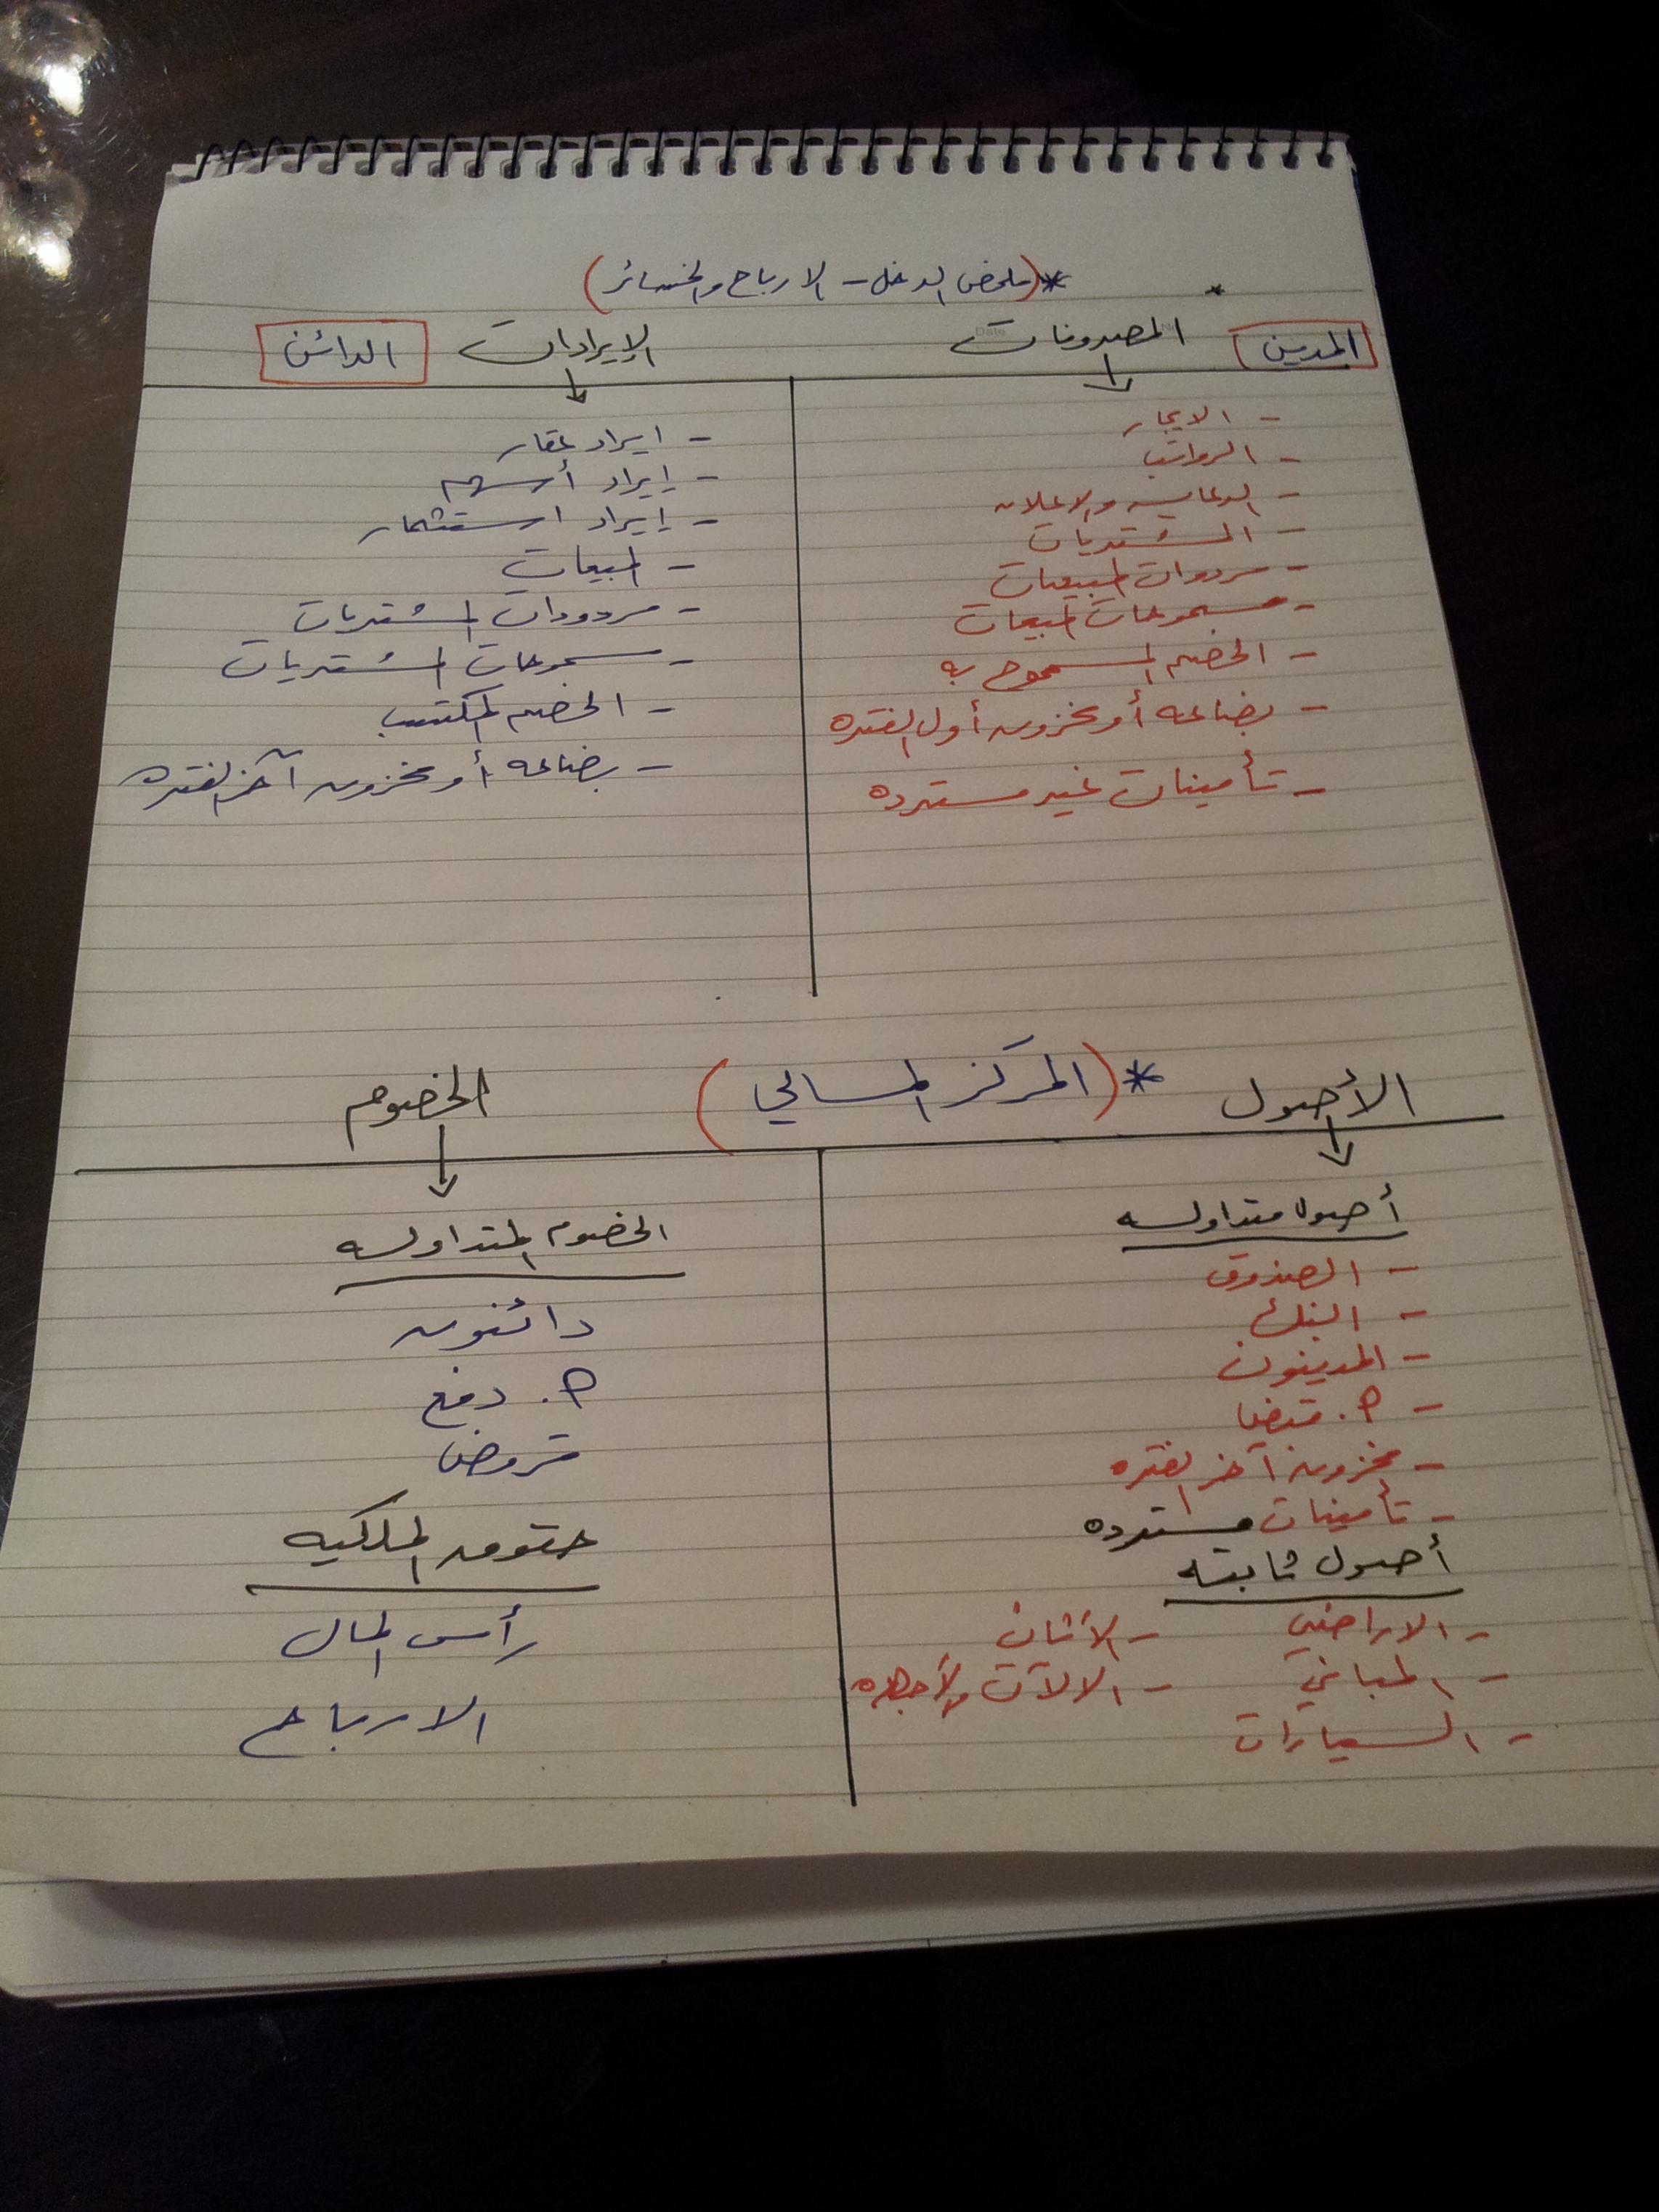 *(ملخص الدخل - الارباح والخسائر)
المدين المصروفات
- الايجار
- الرواتب
- الدعايه والاعلان
- المشتريات
- مردوات المبيعات
- مسموحات المبيعات
- الخصم المسموح به
- بضاعه أو مخزون أول الفتره
- تأمينات غير مسترده
الإيرادات الدائن
- ايراد عقار
- إيراد أسهم
- إيراد استثمار
- المبيعات
- مردودات المشتريات
- مسموحات المشتريات
- الخصم المكتسب
- بضاعه أو مخزون آخر الفتره
*(المركز المالي)
الأصول
أصول متداوله
- الصندوق
- البنك
- المدينون
- أ. قبض
- مخزون آخر الفتره
- تأمينات مسترده
أصول ثابته
- الاراضي - الأثاث
- المباني - الالآت والأجهزه
- السيارات
الخصوم
الخصوم المتداوله
دائنون
أ. دفع
قروض
حقوق الملكيه
رأس المال
الارباح